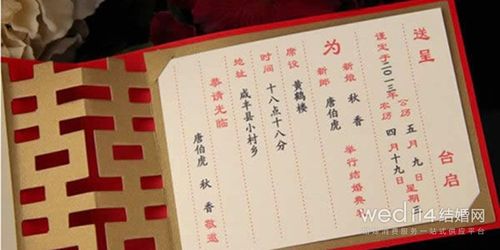 送呈 台启
谨定于二〇一三年
公历 五月九日 星期
农历 四月十九日
为
新娘 秋香
新郎 唐伯虎
举行结婚典礼
席设 黄鹤楼
时间 十八点十八分
地址 咸丰县小村乡
恭请光临
唐伯虎 秋香 敬邀
wed114结婚网